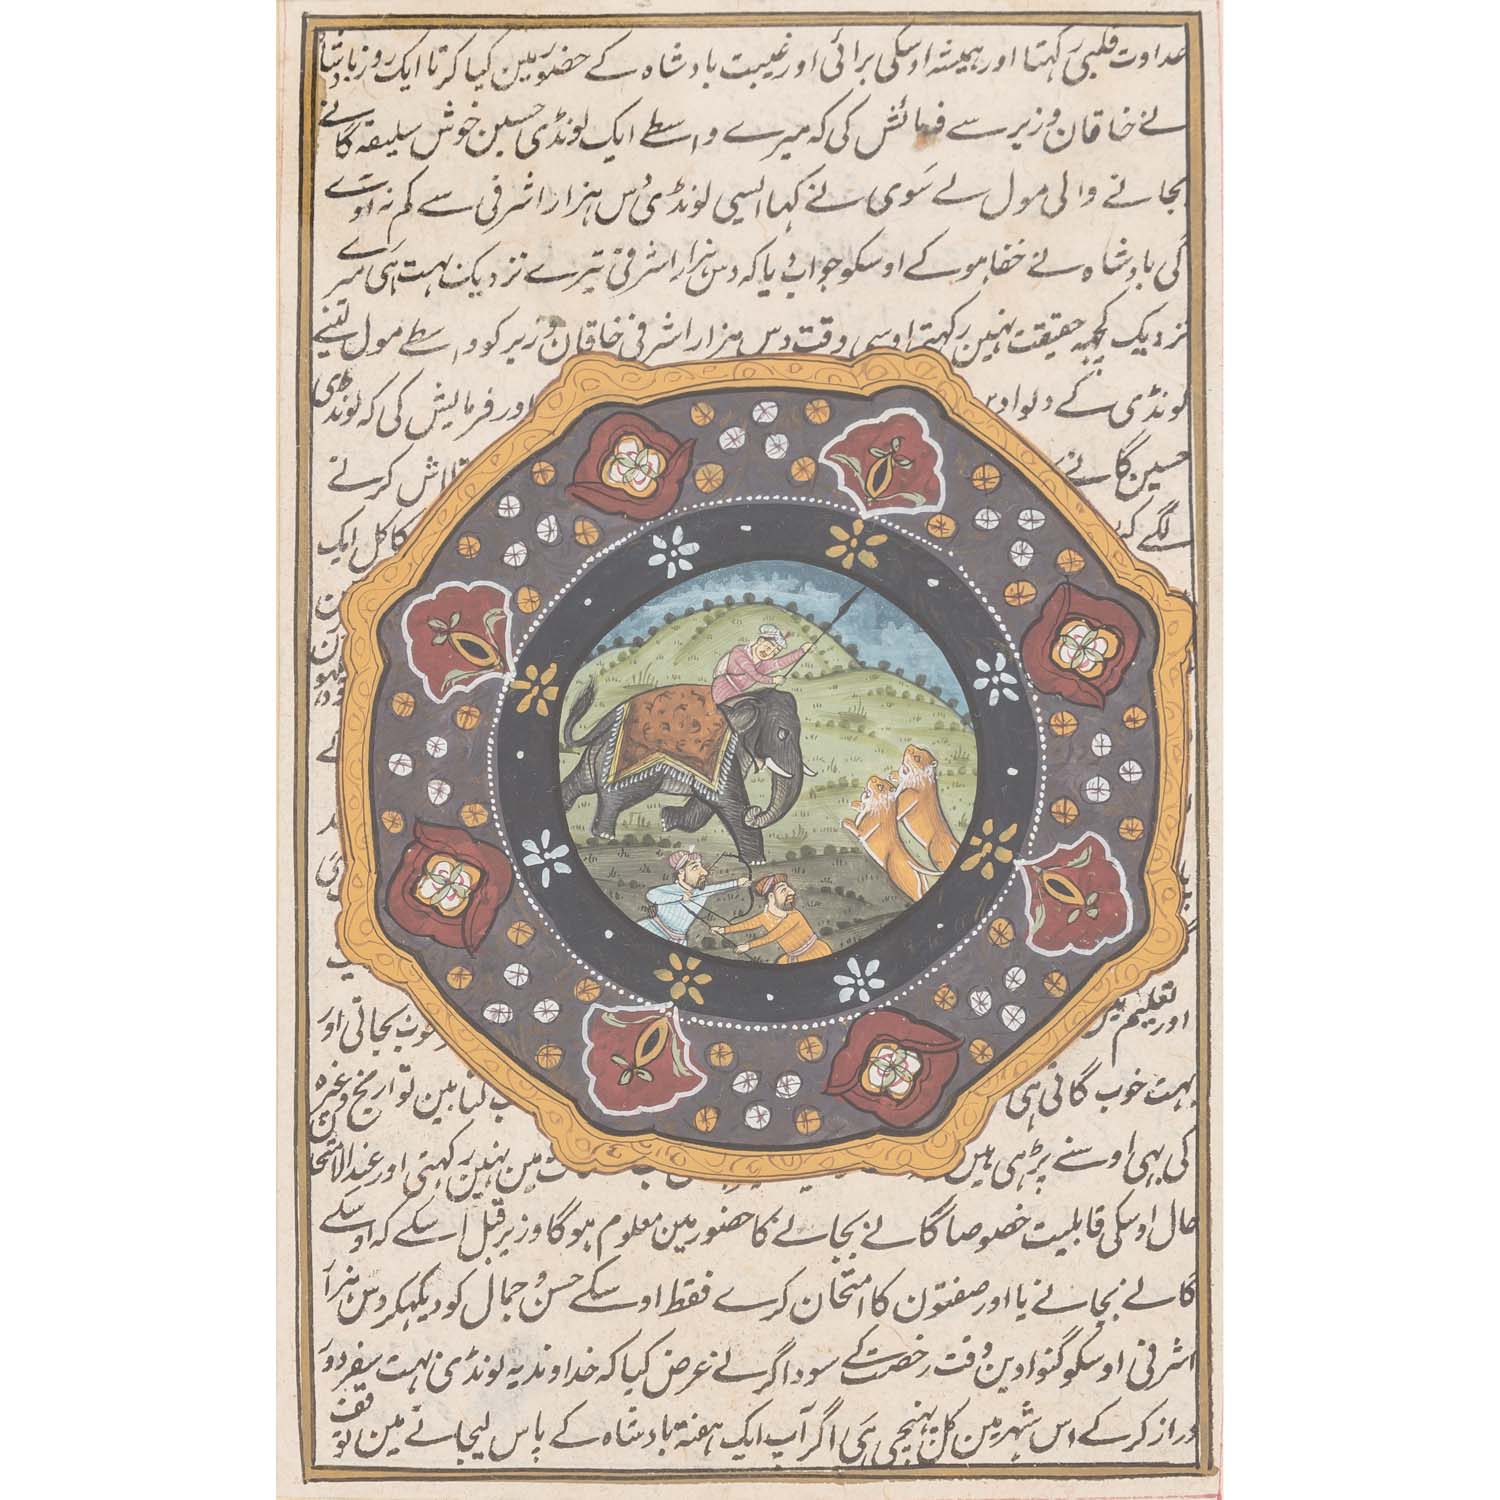 عداوت قلبی رکہتا اور ہمیشہ اوسکی برائی اور غیبت بادشاہ کے حضور مین کیا کرتا ایک روز بادشاہ
نے خاقان وزیر سے فہمائش کی کہ میرے واسطے ایک لونڈی حسین خوش سلیقہ گانے
بجانے والی مول لے سَوی نے کہا ایسی لونڈی دس ہزار اشرفی سے کم نہ آوے
گی بادشاہ نے خفا ہو کے اوسکو جواب دیا کہ دس ہزار اشرفی تیرے نزدیک بہت ہی میرے
نزدیک کچہہ حقیقت نہین رکہتے اوسی وقت دس ہزار اشرفی خاقان وزیر کو واسطے مول لینے
لونڈی کے دلوا دین اور فرمایش کی کہ لونڈی
حسین گانے تلاش کرنے
لگے کہ کا کل ایک
اور تعلیم خوب بجاتی اور
بہت خوب گاتی ہی کتابین تواریخ وغیرہ
کی بہی اوسنے پڑہی ہین مین نہین رکہتی اور عند الامتحان
حال اوسکی قابلیت خصوصا گانے بجانے کا حضور مین معلوم ہوگا وزیر قبل اسکے کہ اوسکے
گانے بجانے یا اور صفتون کا امتحان کرے فقط اوسکے حسن و جمال کو دیکہکر دس ہزار
اشرفی اوسکو گنوا دین وقت رخصت کے سوداگر نے عرض کیا کہ خداوند یہ لونڈی بہت سفر دور
دراز کر کے اس شہر مین کل پہنچی ہی اگر آپ ایک ہفتہ بادشاہ کے پاس لیجانے مین توقف